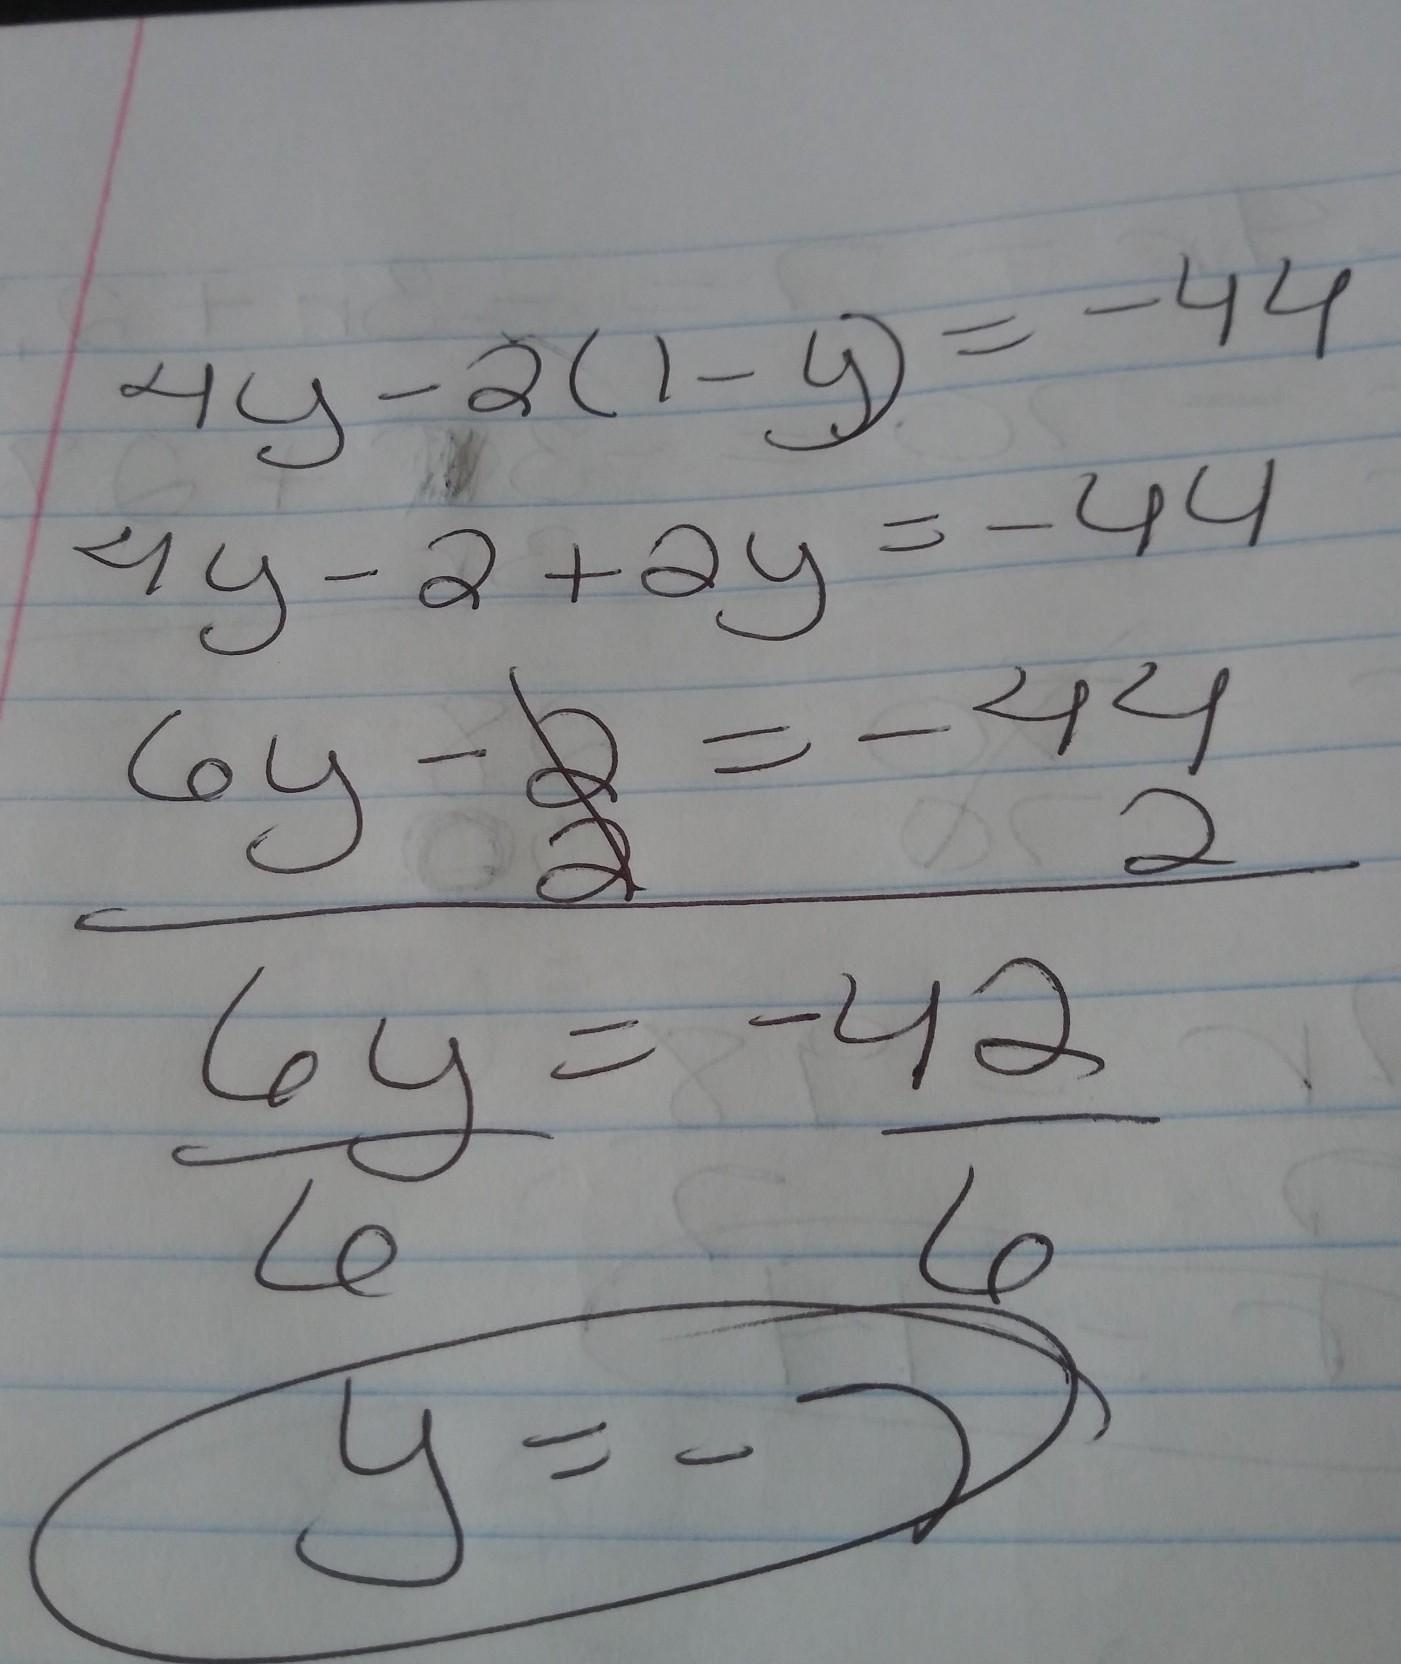 4y - 2(1 - y) = -44
4y - 2 + 2y = -44
6y - 2 = -44
2 2
6y = -42
6 6
y = -7